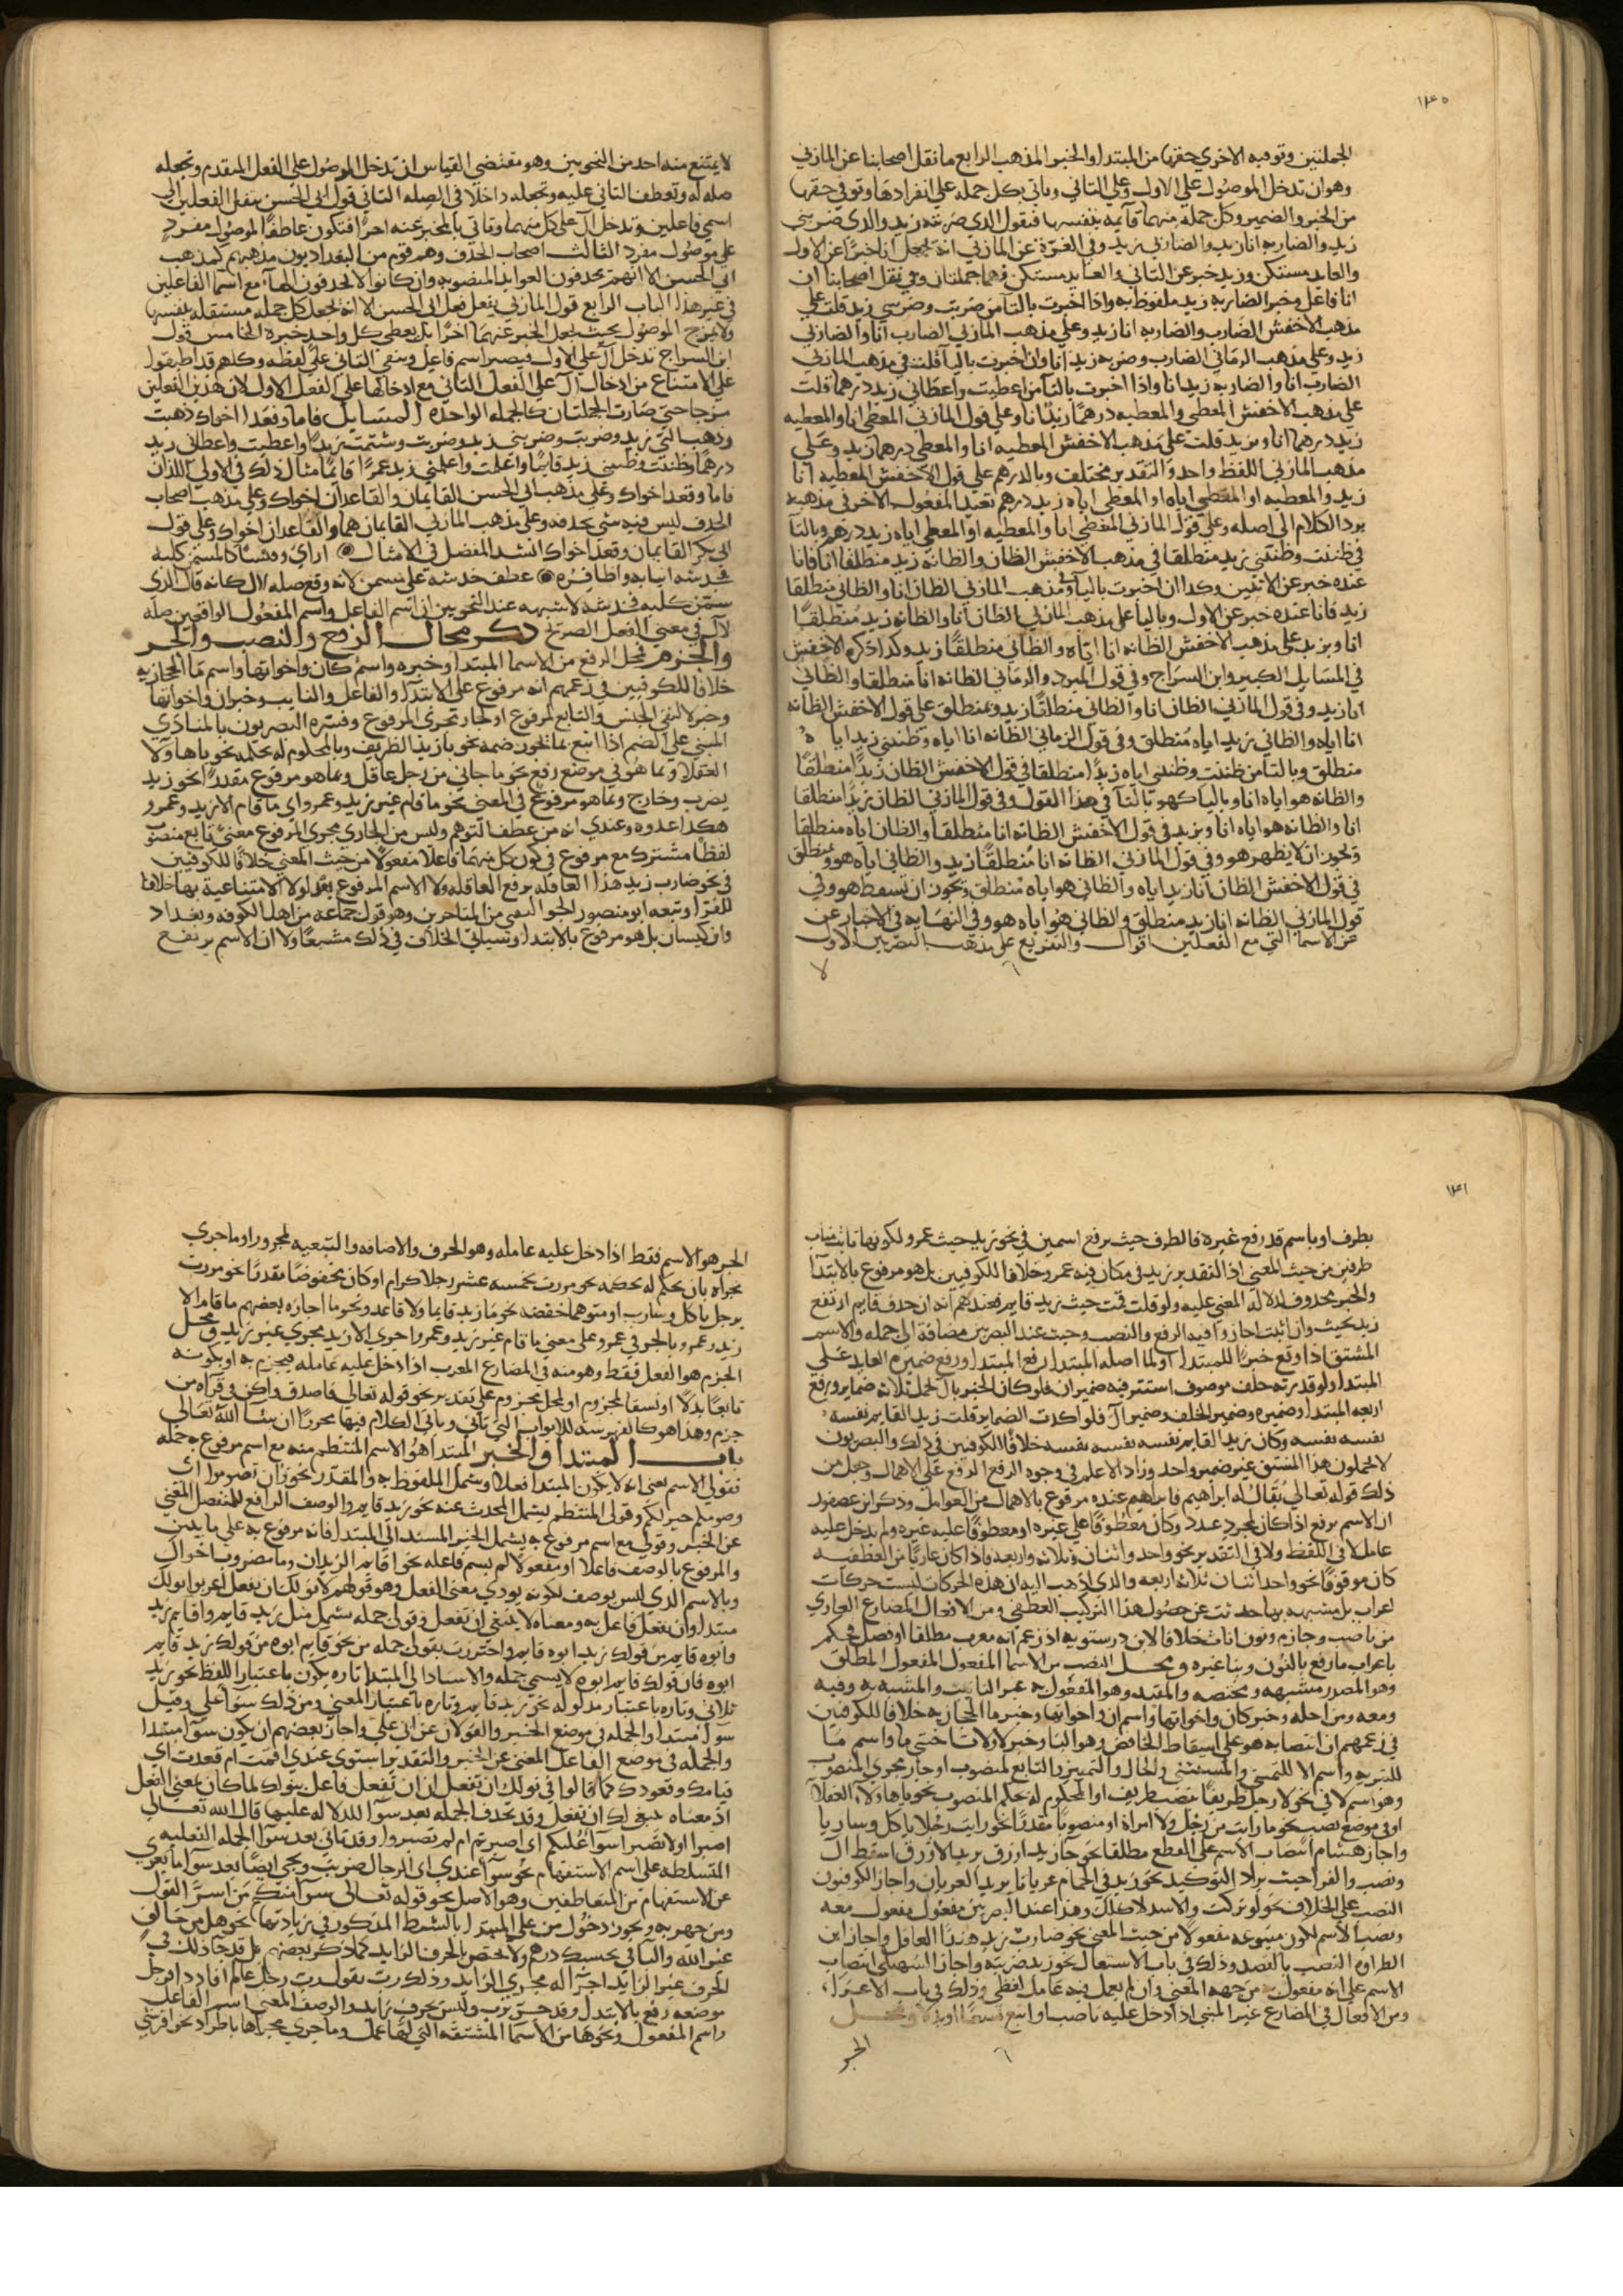 ١٤٥
الجملتين وتوفيه الاخري حقها من المبتدا والخبر المذهب الرابع ما نقل اصحابنا عن المازني
وهو ان تدخل الموصول علي الاول وعلي الثاني وياتي بكل جمله علي انفرادها وتوفي حقها
من الخبر والضمير وكل جملة منهما قايمة بنفسها فتقول الذي ضربته زيد والذي ضربني
زيد والضاربه انا زيد والضاربي زيد وفي الغرة عن المازني انه يجعل انا خبرا عن الاول
والعايد مستكن وزيد خبر عن الثاني والعايد مستكن فهما جملتان وفي نقل اصحابنا ان
انا فاعل وخبر الضاربه زيد ملفوظ به واذا اخبرت بالتا من ضربت وضربني زيد قلت علي
مذهب الاخفش الضارب والضاربه انا زيد وعلي مذهب المازني الضارب انا والضاربي
زيد وعلي مذهب الرماني الضارب وضربه زيد انا وان اخبرت باليا قلت في مذهب المازني
الضارب انا والضاربه زيد انا واذا اخبرت بالتا من اعطيت واعطاني زيد درهما قلت
علي مذهب الاخفش المعطي والمعطيه درهما زيد انا وعلي قول المازني المعطي انا والمعطيه
زيد درهما انا وبزيد قلت علي مذهب الاخفش المعطيه انا والمعطي درهما زيد وعلي
مذهب المازني اللفظ واحد والتقدير مختلف وبالدرهم علي قول الاخفش المعطيه انا
زيد والمعطيه او المعطي اياه او المعطي اياه زيد درهم تعيد المفعول الاخر في مذهبه
يرد الكلام الي اصله وعلي قول المازني المعطي انا والمعطيه او المعطي اياه زيد درهم وبالتا
في ظننت وظنني زيد منطلقا في مذهب الاخفش الظان والظانه زيد منطلقا انا فانا
عنده خبر عن الاثنين وكذا ان اخبرت باليا وفي مذهب المازني الظان انا والظاني منطلقا
زيد فانا عنده خبر عن الاول وباليا علي مذهب المازني الظان انا والظانه زيد منطلقا
انا وبزيد علي مذهب الاخفش الظانه انا اياه والظاني منطلقا زيد وكذا ذكره الاخفش
في المسايل الكبير وابن السراج وفي قول المبرد والرماني الظانه انا منطلقا والظاني
انا زيد وفي قول المازني الظان انا والظاني منطلقا زيد وبمنطلق علي قول الاخفش الظانه
انا اياه والظاني زيد اياه منطلق وفي قول الرماني الظانه انا اياه وظنني زيد اياه
منطلق وبالتا من ظننت وظنني اياه زيدا منطلقا في قول الاخفش الظان زيدا منطلقا
والظانه هو اياه انا وباليا كهو بالتا في هذا القول وفي قول المازني الظان زيدا منطلقا
انا والظانه هو اياه انا وبزيد في قول الاخفش الظانه انا منطلقا والظان اياه منطلقا
وتجوز ان لا يظهر هو وفي قول المازني الظانه انا منطلقا زيد والظاني اياه هو وبمنطلق
في قول الاخفش الظان انا زيدا اياه والظاني هو اياه منطلق وتجوز ان تسقط هو وفي
قول المازني الظانه انا زيد منطلق والظاني هو اياه هو وفي النهايه في الاخبار عن
عن الاسما التي مع الفعلين اقوال والتفريع علي مذهب البصريين الاول
لا
لا يمتنع منه احد من النحويين وهو مقتضي القياس ان تدخل الموصول علي الفعل المتقدم وتجعله
صله له وتعطف الثاني عليه وتجعله داخلا في الصله الثاني قول ابي الحسن ينقل الفعلين الي
اسمي فاعلين وتدخل ال علي كل منهما وتاتي بالمخبر عنه اخرا فتكون عاطفا لموصول مفرد
علي موصول مفرد الثالث اصحاب الحذف وهم قوم من البغداديون مذهبهم كمذهب
ابي الحسن الا انهم يحذفون العوايد المنصوبه وان كانوا لا يحذفون الها مع اسما الفاعلين
في غير هذا الباب الرابع قول المازني يفعل فعل ابي الحسن الا انه يجعل كل جمله مستقله بنفسها
ولا يمزج الموصول بحيث يجعل الخبر عنهما اخرا بل يعطي كل واحد خبره الخامس قول
ابن السراج تدخل ال علي الاول فيصير اسم فاعل ويبقي الثاني علي لفظه وكلهم قد اطبقوا
علي الامتناع من ادخال ال علي الفعل الثاني مع ادخالها علي الفعل الاول لان هذين الفعلين
مزجا حتي صارت الجملتان كالجمله الواحده المسايل قاما وقعدا اخواك ذهبت
وذهب الي زيد وضربت وضربني زيد وضربت وشتمت زيدا واعطيت واعطاني زيد
درهما وظننت وظنني زيد قايما واعلمت واعلمني زيد عمرا قايما مثال ذلك في الاولي اللذان
قاما وقعدا اخواك وعلي مذهب ابي الحسن القايمان والقاعدان اخواك وعلي مذهب اصحاب
الحذف ليس فيه شي يحذفه وعلي مذهب المازني القايمان هما والقاعدان اخواك وعلي قول
ابي بكر القايمان وقعدا اخواك انشد المفضل في الامثال اراني وقيسا كالمسمن كلبه
فخدشه انيابه واظافره عطف خدشه علي مسمن لانه وقع صله ال كانه قال الذي
سمن كلبه فخدشه لا شبهه عند النحويين ان اسم الفاعل واسم المفعول الواقعين صله
لال في معني الفعل الصريح ذكر محال الرفع والنصب والجر
والجزم فمحل الرفع من الاسما المبتدا وخبره واسم كان واخواتها واسم ما الحجازيه
خلافا للكوفيين في زعمهم انه مرفوع علي الابتدا والفاعل والنايب وخبر ان واخواتها
وخبر لا لنفي الجنس والتابع لمرفوع او لجار مجري المرفوع وفسره البصريون بالمنادي
المبني علي الضم اذا اتبع بما يجوز ضمه نحو يا زيد الظريف وبالمحلوم له بحكمه نحو يا هاولا
العقلا وبما هو في موضع رفع نحو ما جاني من رجل عاقل وبما هو مرفوع مقدرا نحو زيد
يضرب وخارج وبما هو مرفوع في المعني نحو ما قام غير زيد وعمرو اي ما قام الا زيد وعمرو
هكذا عدوه وعندي انه من عطف التوهم وليس من الجاري مجري المرفوع معني تابع منصوب
لفظا مشترك مع مرفوع في كون كل منهما فاعلا مفعولا من حيث المعني خلافا للكوفيين
في نحو ضارب زيد هندا العاقله برفع العاقله ولا الاسم المرفوع بعد لولا الامتناعيه بها خلافا
للفرا وتبعه ابو منصور الجواليقي من المتاخرين وهو قول جماعه من اهل الكوفه وبغداد
وابن كيسان بل هو مرفوع بالابتدا وسياتي الخلاف في ذلك مشبعا ولا ان الاسم يرتفع
١٤٦
بظرف او باسم قد رفع غيره فالظرف حيث يرفع اسمين في نحو زيد حيث عمرو لكونها نابت مناب
ظرفين من حيث المعني اذ التقدير زيد في مكان فيه عمرو خلافا للكوفيين بل هو مرفوع بالابتدا
والخبر محذوف لدلاله المعني عليه ولو قلت قمت حيث زيد قايم فعندهم انه ان حذف قايم ارتفع
زيد بحيث وان اثبت اجازوا فيه الرفع والنصب وحيث عند البصريين مضافة الي جمله والاسم
المشتق اذا وقع خبرا للمبتدا او لما اصله المبتدا رفع المبتدا ورفع ضميره العايد علي
المبتدا ولو قدرته خلف موصوف استتر فيه ضميران فلو كان الخبر بال تحمل ثلاثه ضماير ورفع
اربعه المبتدا وضميره وضمير الخلف وضمير ال فلو اكدت الضماير قلت زيد القايم نفسه
نفسه نفسه وكان زيد القايم نفسه نفسه نفسه خلافا للكوفيين في ذلك والبصريون
لا يحملون هذا المشتق غير ضمير واحد وزاد الاعلم في وجوه الرفع الرفع علي الاهمال وجعل من
ذلك قوله تعالي يقال له ابراهيم فابراهيم عنده مرفوع بالاهمال من العوامل وذكر ابن عصفور
ان الاسم يرفع اذا كان لمجرد عدد وكان معطوفا علي غيره او معطوفا عليه غيره ولم يدخل عليه
عامل لا في اللفظ ولا في التقدير نحو واحد واثنان وثلاثه واربعه واذا كان عاريا من العطف
كان موقوفا نحو واحد اثنان ثلاثه اربعه والذي اذهب اليه ان هذه الحركات ليست حركات
اعراب بل مشبهه بها حدثت عن حصول هذا التركيب العطفي ومن الافعال المضارع العاري
من ناصب وجازم ونون اناث خلافا لابن درستويه اذ زعم انه معرب مطلقا او فصل فحكم
باعراب ما رفع بالنون وبنا غيره ومحل النصب من الاسما المفعول المفعول المطلق
وهو المصدر مشبهه ومختصه والمقيد وهو المفعول به غير النايب والمشبه به وفيه
ومعه ومن اجله وخبر كان واخواتها واسم ان واخواتها وخبر ما الحجازيه خلافا للكوفيين
في زعمهم ان انتصابه هو علي اسقاط الخافض وهو البا وخبر لا ولات اختي ما واسم ما
للتبريه واسم الا للتمني والمستثني والحال والتمييز والتابع لمنصوب او جار مجري المنصوب
وهو اسم لا في نحو لا رجل ظريفا بنصب ظريف او المحكوم له بحكم المنصوب نحو يا هاولا العقلا
او في موضع نصب نحو ما رايت من رجل ولا امراة او منصوبا مقدرا نحو رايت رجلا ياكل وساريا
واجاز هشام انتصاب الاسم علي القطع مطلقا نحو جا زيد ازرق يريد الازرق اسقط ال
ونصب والفرا حيث يراد التوكيد نحو زيد في الحمام عريانا يريد العريان واجاز الكوفيون
النصب علي الخلاف نحو لو تركت والاسد لاكلك وهذا عند البصريين مفعول مفعول معه
ونصب الاسم لكون متبوعه مفعولا من حيث المعني نحو ضارب زيد هندا العاقل واجاز ابن
الطراوه النصب بالقصد وذلك في باب الاشتغال نحو زيد ضربته واجاز السهيلي انتصاب
الاسم علي انه مفعول به من جهه المعني وان لم يعمل فيه عامل لفظي وذلك في باب الاغرا
ومن الافعال في المضارع غير المبني اذا دخل عليه ناصب او اتبع نسقا او بدلا ومحل
الجر
الجر هو الاسم فقط اذا دخل عليه عامله وهو الحرف والاضافه والتبعيه لمجرور او ما جري
مجراه بان يحكم له بحكمه نحو مررت بخمسه عشر رجلا كرام او كان مخفوضا مقدرا نحو مررت
برجل ياكل وشارب او متوهما خفضه نحو ما زيد قايما ولا قاعد ونحو ما اجازه بعضهم ما قام الا
زيد وعمرو بالجر في عمرو علي معني ما قام غير زيد وعمرو اجري الا زيد مجري غير زيد ومحل
الجزم هو الفعل فقط وهو منه في المضارع المعرب اذا دخل عليه عامله فيجزم به او بكونه
تابعا بدلا او نسقا لمجزوم او لمحل مجزوم علي تقدير نحو قوله تعالي فاصدق واكن في قراه من
جزم وهذا هو كالفهرسه للابواب التي تاتي وياتي الكلام فيها محررا ان شا الله تعالي
باب المبتدا والخبر المبتدا هو الاسم المنتظم منه مع اسم مرفوع به جمله
فقولي الاسم يعني انه لا يكون المبتدا فعلا ويشمل الملفوظ به والمقدر نحو وان تصوموا اي
وصومكم خير لكم وقولي المنتظم ليشمل المحدث عنه نحو زيد قايم والوصف الرافع للمنفصل المغني
عن الخبر وقولي مع اسم مرفوع به يشمل الخبر المسند الي المبتدا فانه مرفوع به علي ما يبين
والمرفوع بالوصف فاعلا او مفعولا لم يسم فاعله نحو اقايم الزيدان وما مضروب اخواك
وبالاسم الذي ليس بوصف لكونه يودي معني الفعل وهو قولهم لا نولك ان تفعل اعربوا نولك
مبتدا وان تفعل فاعل به ومعناه لا ينبغي ان تفعل وقولي جمله يشمل مثل زيد قايم واقايم زيد
وابوه قايم من قولك زيد ابوه قايم واحترزت بقولي جمله من نحو قايم ابوه من قولك زيد قايم
ابوه فان قولك قايم ابوه لا يسمي جمله والاسناد الي المبتدا تاره يكون باعتبار اللفظ نحو زيد
ثلاثي وتاره باعتبار مدلوله نحو زيد قايم وتاره باعتبار المعني ومن ذلك سوا علي وقيل
سوا مبتدا والجمله في موضع الخبر والقولان عن ابي علي واجاز بعضهم ان يكون سوا مبتدا
والجمله في موضع الفاعل المغني عن الخبر والتقدير استوي عندي اقمت ام قعدت اي
قيامك وقعودك كما قالوا في نولك ان تفعل ان ان تفعل فاعل بنولك لما كان بمعني الفعل
اذ معناه ينبغي لك ان تفعل وقد يحذف الجمله بعد سوا للدلاله عليها قال الله تعالي
اصبروا او لا تصبروا سوا عليكم اي اصبرتم ام لم تصبروا وقد تاتي بعد سوا الجمله الفعليه
المتسلطه علي اسم الاستفهام نحو سوا عندي اي الرجال ضربت ويجي ايضا بعد سوا ما يعري
عن الاستفهام من المتعاطفين وهو الاصل نحو قوله تعالي سوا منكم من اسر القول
ومن جهر به ويجوز دخول من علي المبتدا بالشرط المذكور في زيادتها نحو هل من خالق
غير الله والبا في بحسبك درهم ولا يختص بالحرف الزايد كما ذكر بعضهم بل قد جا ذلك في
الحرف غير الزايد اجرا له مجري الزايد وذلك رب تقول رب رجل عالم افاد فرجل
موضعه رفع بالابتدا وقد جر برب وليس بحرف زايد والوصف المعني اسم الفاعل
واسم المفعول ونحوها من الاسما المشتقه التي لها عمل وما جري مجراها باطراد نحو اقرشي